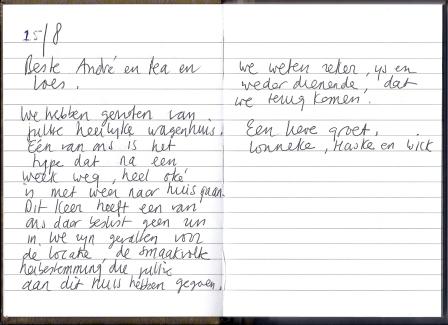 15/8
Beste André en Pea en
Loes.
We hebben genoten van
jullie heerlijke wagenhuis.
Eén van ons is het
type dat na een
week weg, heel oké
is met weer naar huis gaan.
Dit keer heeft een van
ons daar beslist geen zin
in. We zijn gevallen voor
de locatie, de smaakvolle
herbestemming die jullie
aan dit huis hebben gegeven.
We weten zeker, ijs en
weder dienende, dat
we terug komen.
Een lieve groet,
Lonneke, Maske en Wick